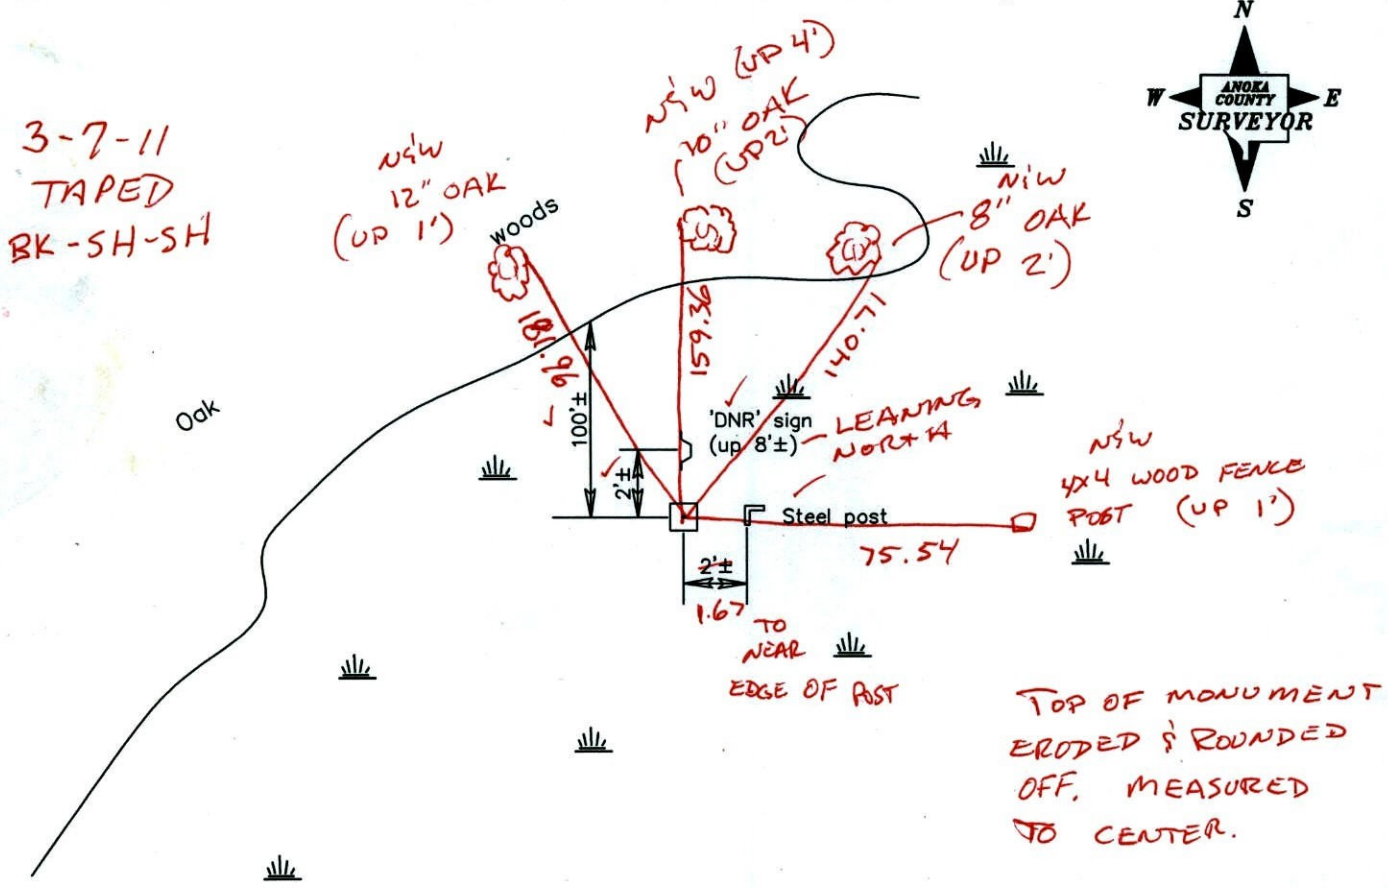 N
W
ANOKA
COUNTY
E
SURVEYOR
S
3-7-11
TAPED
BK-SH-SH
N&W
12" OAK
(UP 1')
woods
N&W (UP 4')
10" OAK
(UP 2')
N&W
8" OAK
(UP 2')
181.96
159.36
140.71
Oak
100'±
2'±
'DNR' sign
(up 8'±)
LEANING
NORTH
Steel post
N&W
4x4 WOOD FENCE
POST (UP 1')
75.54
2'±
1.67
TO
NEAR
EDGE OF POST
TOP OF MONUMENT
ERODED & ROUNDED
OFF. MEASURED
TO CENTER.